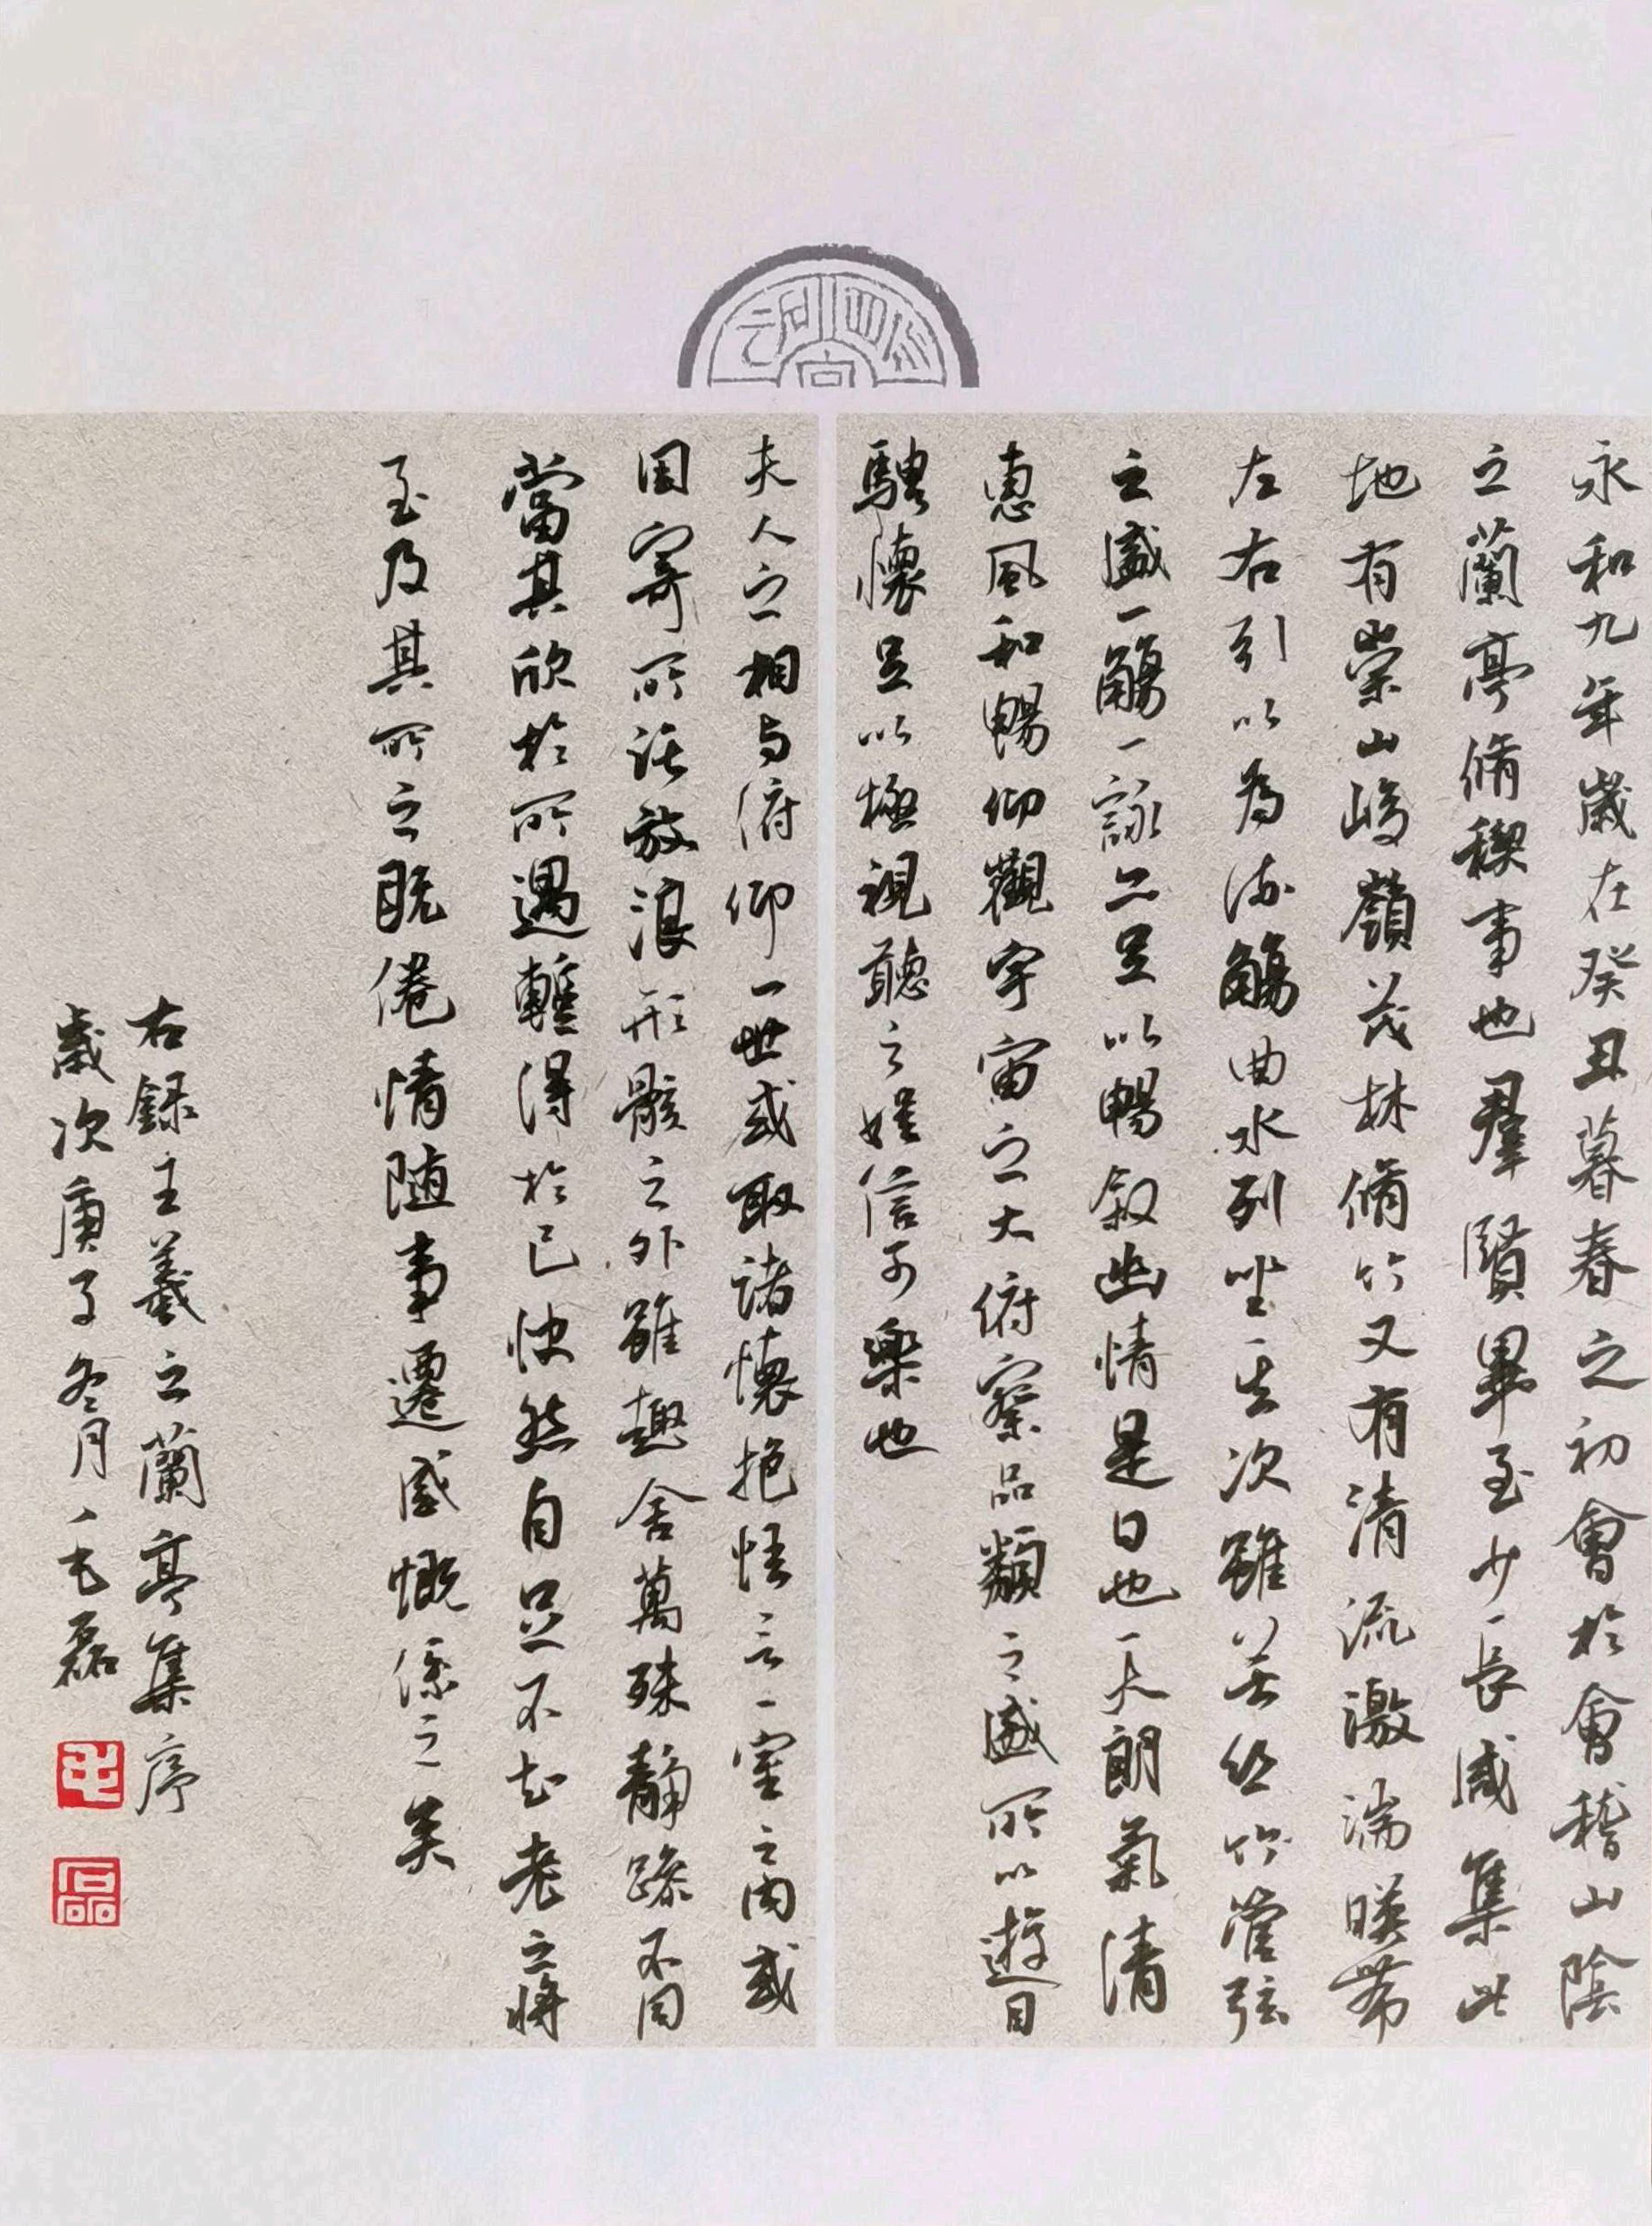 永和九年歲在癸丑暮春之初會於會稽山陰
之蘭亭脩稧事也羣賢畢至少長咸集此
地有崇山峻嶺茂林脩竹又有清流激湍暎帶
左右引以為流觴曲水列坐其次雖無絲竹管弦
之盛一觴一詠亦足以暢敘幽情是日也天朗氣清
惠風和暢仰觀宇宙之大俯察品類之盛所以遊目
騁懷足以極視聽之娛信可樂也
夫人之相與俯仰一世或取諸懷抱悟言一室之內或
因寄所託放浪形骸之外雖趣舍萬殊靜躁不同
當其欣於所遇蹔得於己快然自足不知老之將
至及其所之既倦情隨事遷感慨係之矣
右録王羲之蘭亭集序
歲次庚子冬月毛磊
毛
磊